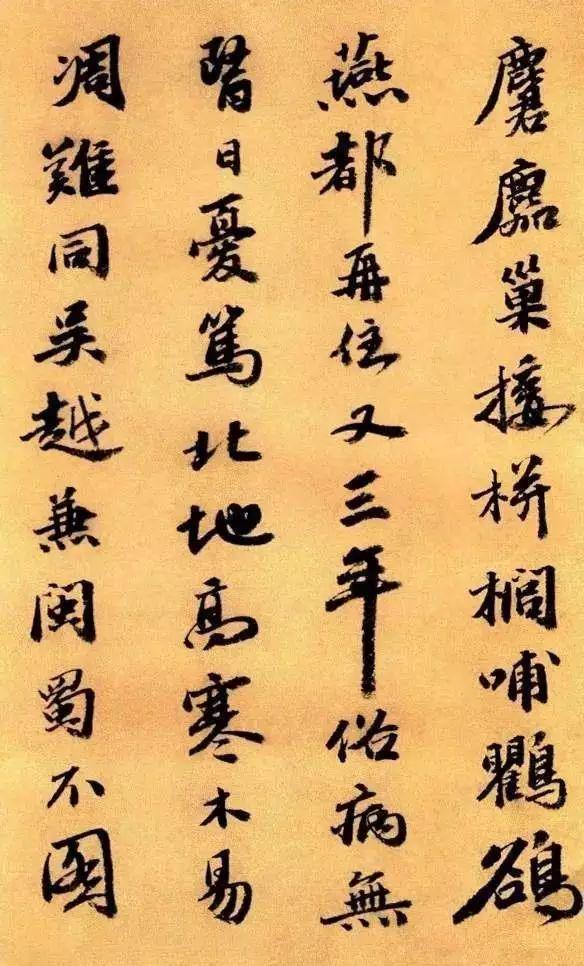 麏巢接栟櫚哺鸜鵒
燕都再住又三年俗病無
醫日憂篤北地高寒木易
凋難同吳越兼閩蜀不圖